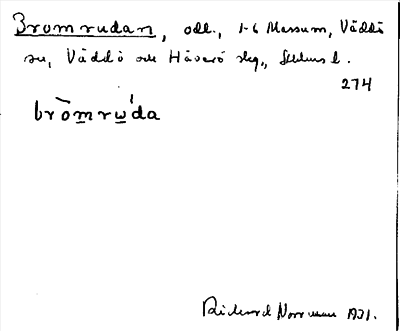 Bromrudan, odl., 1-6 Massum, Väddö
sn, Väddö och Häverö slg., Sthlms l.
274
bròmrw'da
Rickard Norrman 1931.